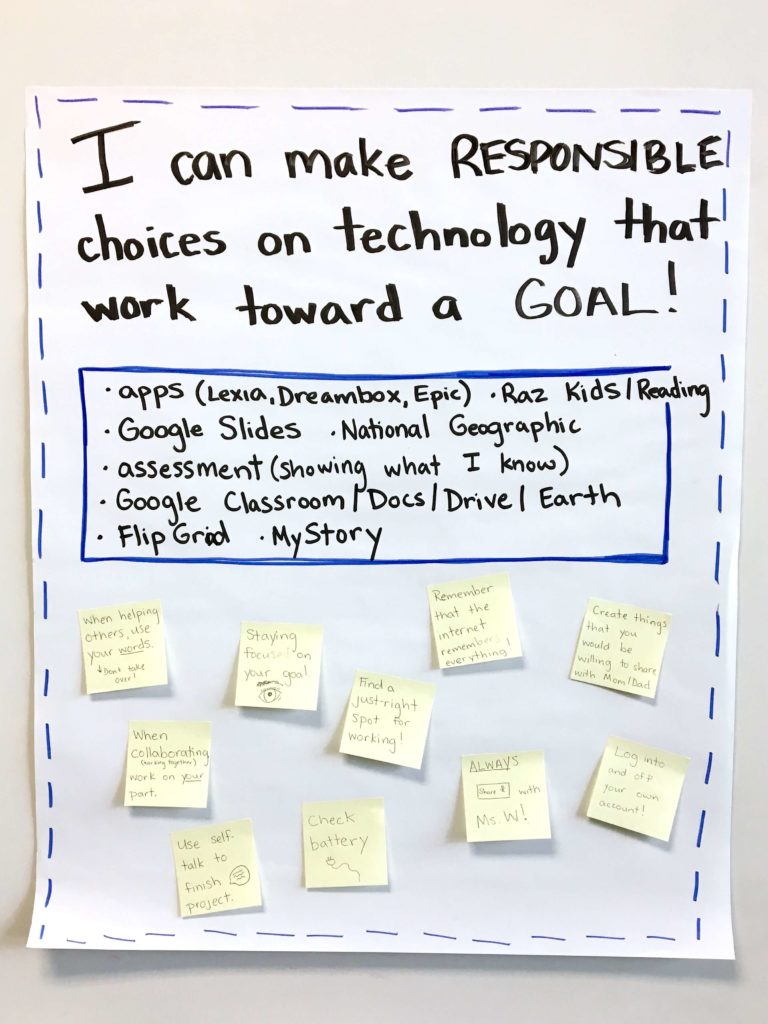 I can make RESPONSIBLE
choices on technology that
work toward a GOAL!
• apps (Lexia, Dreambox, Epic) • Raz Kids/Reading
• Google Slides • National Geographic
• assessment (showing what I know)
• Google Classroom/Docs/Drive/Earth
• Flip Grid • MyStory
When helping
others, use
your words.
↓Don't take
over!
Staying
focused on
your goal.
Remember
that the
internet
remembers
everything!
Create things
that you
would be
willing to share
with Mom/Dad
Find a
just-right
spot for
working!
When
collaborating
(working together)
work on your
part.
ALWAYS
Share with
Ms. W!
Log into
and off
your own
account!
Use self-
talk to
finish
project.
Check
battery